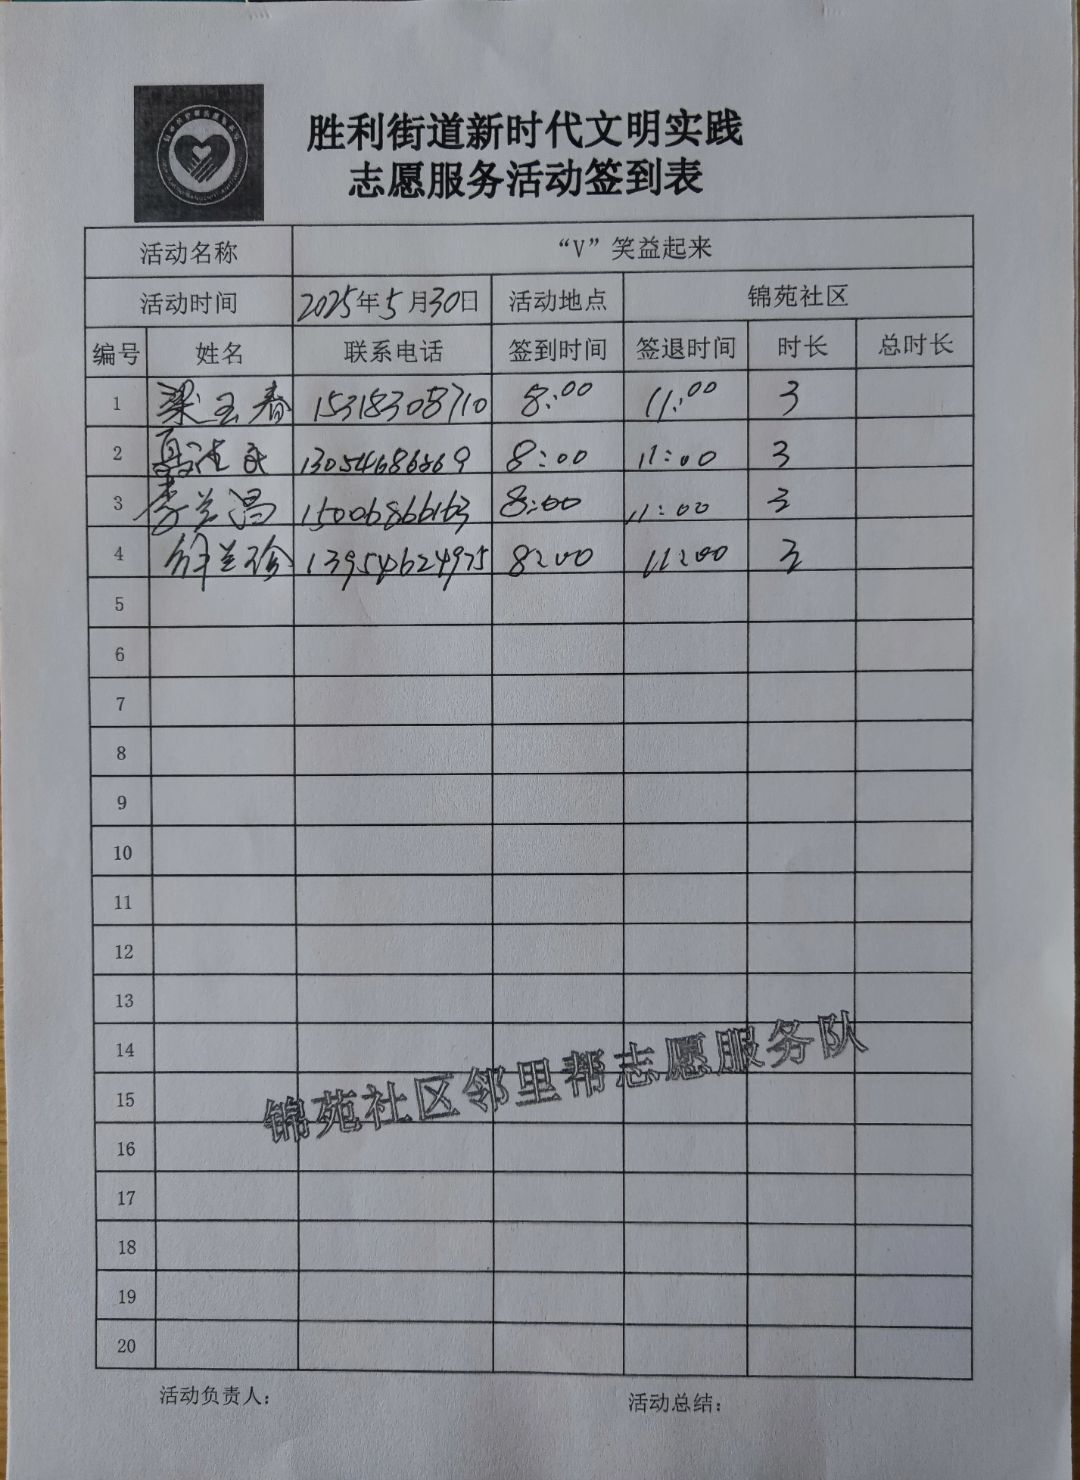 胜利街道新时代文明实践
志愿服务活动签到表
活动名称 “V”笑益起来
活动时间 2025年5月30日 活动地点 锦苑社区
编号 姓名 联系电话 签到时间 签退时间 时长 总时长
1 梁玉春 15318308710 8:00 11:00 3
2 13054686869 8:00 11:00 3
3 李兰昌 15006866163 8:00 11:00 3
4 徐兰珍 13954624975 8:00 11:00 3
5
6
7
8
9
10
11
12
13
14
15
16
17
18
19
20
锦苑社区邻里帮志愿服务队
活动负责人: 活动总结: